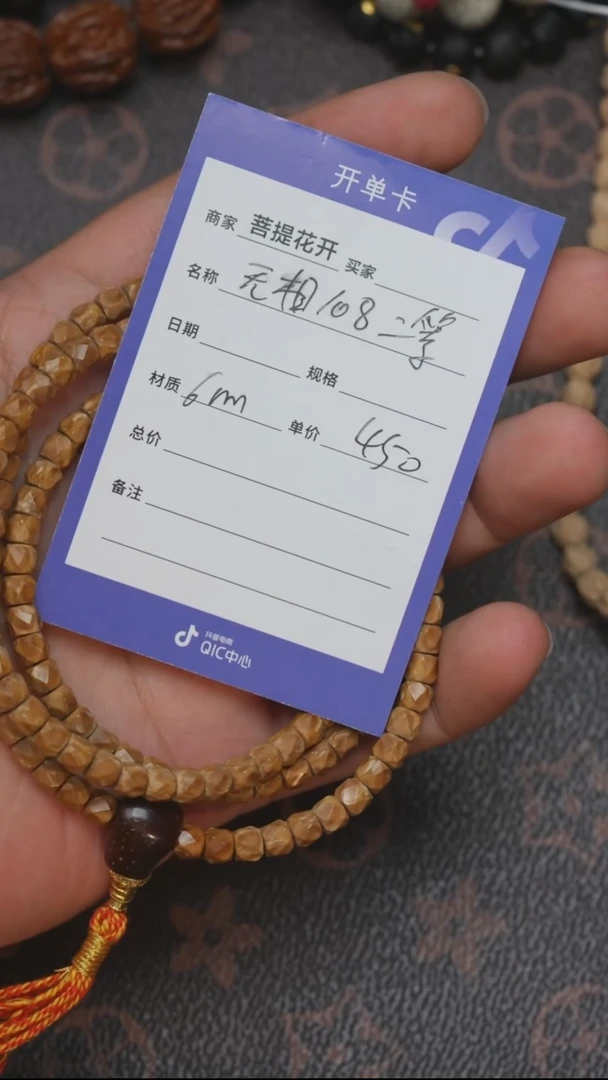 开单卡
商家 菩提花开 买家
名称 无相108 二等
日期 规格
材质 6m 单价 450
总价
备注
抖音电商
QIC中心